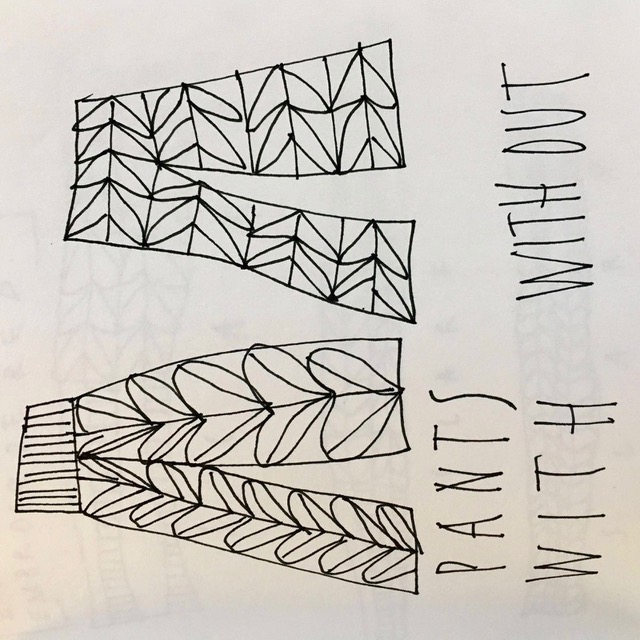 PANTS
WITH WITH OUT